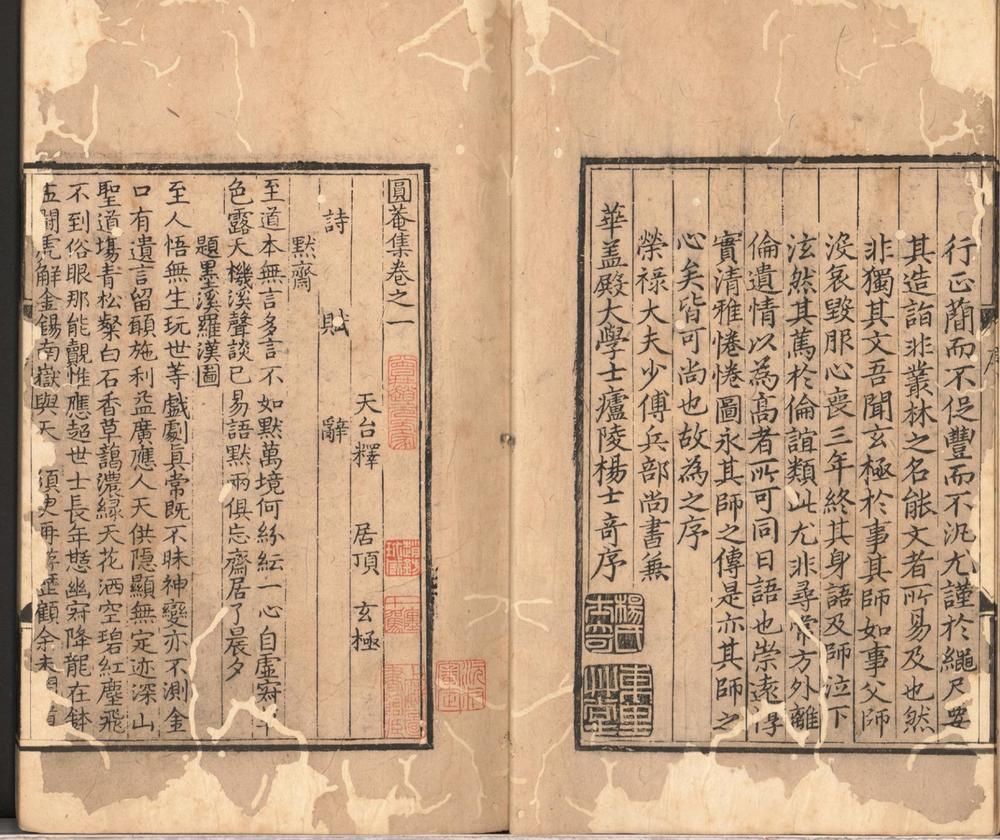 行正蕳而不促豐而不汎尤謹於繩尺要
其造詣非叢林之名能文者所易及也然
非獨其文吾聞玄極於事其師如事父師
沒哀毀服心喪三年終其身語及師泣下
泫然其篤於倫誼類此尤非尋常方外離
倫遺情以為髙者所可同日語也崇遠淂
實清雅惓惓圖永其師之傳是亦其師之
心矣皆可尚也故為之序
榮禄大夫少傅兵部尚書兼
華盖殿大學士廬陵楊士竒序
楊氏士奇
圓菴集卷之一
天台釋 居頂 玄極
詩 賦 辭
默齋
至道本無言多言不如默萬境何紛紜一心自虛寂
色露天機溪聲談已易語默兩俱忘齋居了晨夕
題墨溪羅漢圖
至人悟無生玩世等戲劇真常既不昧神變亦不測金
口有遺言留顧施利益廣應人天供隱顯無定迹深山
聖道塲青松粲白石香草藹濃緑天花洒空碧紅塵飛
不到俗眼那能覿惟應超世士長年憇幽寂降龍在鉢
盂闘虎解金錫南嶽與天 須臾再 歴顧余未